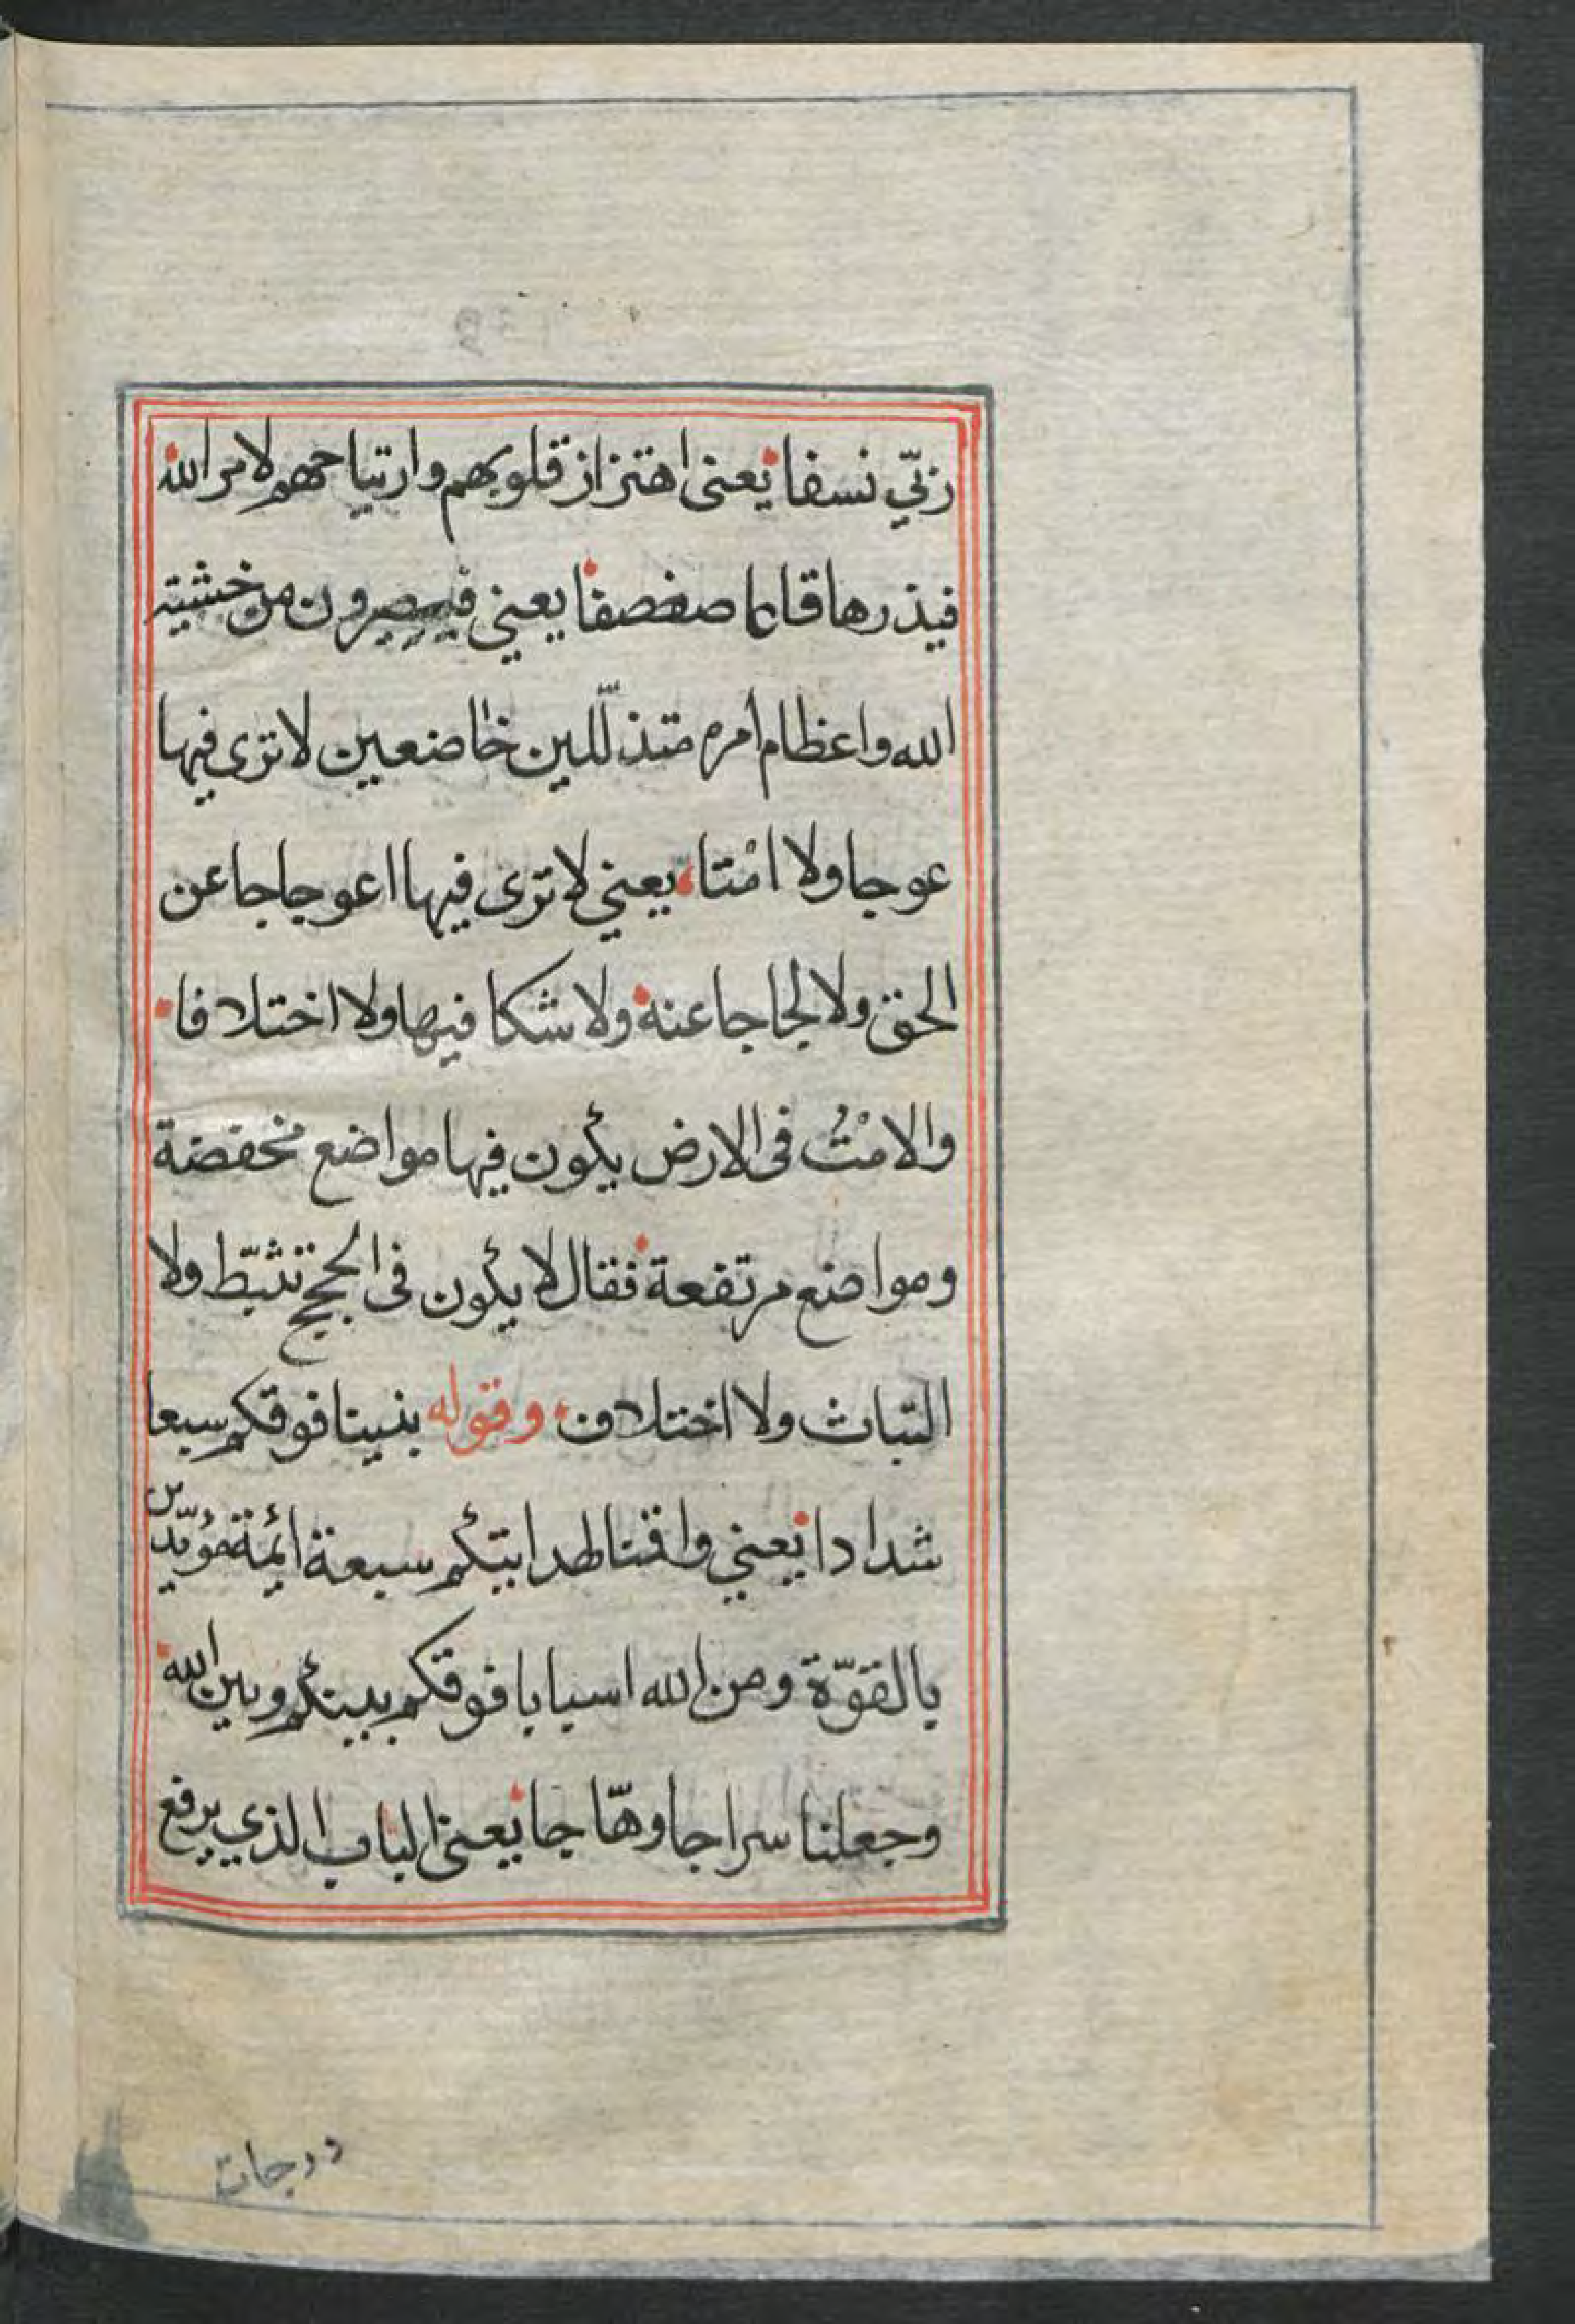 ربّي نسفا يعنى اهتزاز قلوبهم وارتياحهم لامر الله
فيذرها قاعا صفصفا يعني فيصيرون من خشية
الله واعظام أمره متذلّلين خاضعين لا ترى فيها
عوجا ولا امْتا يعني لا ترى فيها اعوجاجا عن
الحق ولا لجاجا عنه ولا شكا فيها ولا اختلافا
والامْتُ فى الارض يكون فيها مواضع منخفضة
ومواضع مرتفعة فقال لا يكون فى الحجج تثبّط ولا
التباث ولا اختلاف وقوله بنينا فوقكم سبعا
شدادا يعني واقمنا لهدايتكم سبعة ائمة مؤيّدين
بالقوّة ومن الله اسبابا فوقكم بينكم وبين الله
وجعلنا سراجا وهّاجا يعنى الباب الذي يرفع
درجات